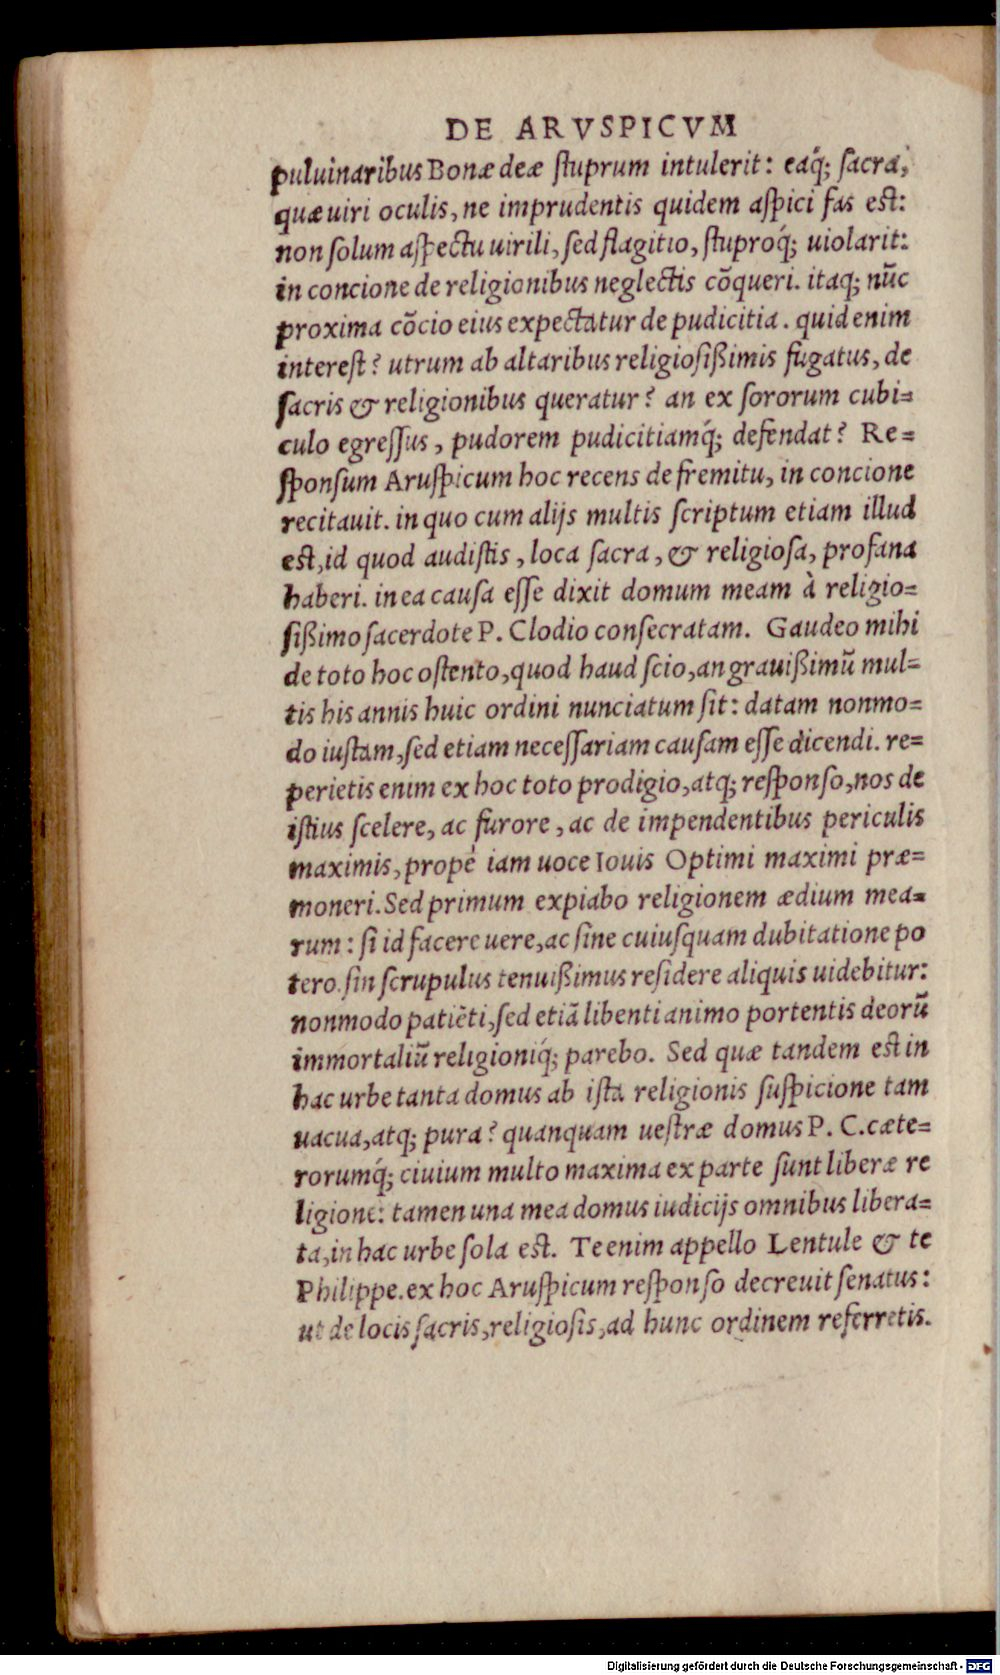 DE ARVSPICVM
puluinaribus Bonæ deæ ſtuprum intulerit: eaq́; ſacra,
quæ uiri oculis, ne imprudentis quidem aſpici fas est:
non ſolum aſpectu uirili, ſed flagitio, ſtuproq́; uiolarit:
in concione de religionibus neglectis cõqueri. itaq; nũc
proxima cõcio eius expectatur de pudicitia. quid enim
intereſt? utrum ab altaribus religioſißimis fugatus, de
ſacris & religionibus queratur? an ex ſororum cubi=
culo egreſſus, pudorem pudicitiamq́; defendat? Re=
ſponſum Aruſpicum hoc recens de fremitu, in concione
recitauit. in quo cum alijs multis ſcriptum etiam illud
est, id quod audiſtis, loca ſacra, & religioſa, profana
haberi. in ea cauſa eſſe dixit domum meam à religio=
ſißimo ſacerdote P. Clodio conſecratam. Gaudeo mihi
de toto hoc oſtento, quod haud ſcio, an grauißimũ mul=
tis his annis huic ordini nunciatum ſit: datam nonmo=
do iuſtam, ſed etiam neceſſariam cauſam eſſe dicendi. re=
perietis enim ex hoc toto prodigio, atq; reſponſo, nos de
iſtius ſcelere, ac furore, ac de impendentibus periculis
maximis, propè iam uoce Iouis Optimi maximi præ=
moneri. Sed primum expiabo religionem ædium mea=
rum: ſi id facere uere, ac ſine cuiuſquam dubitatione po
tero. ſin ſcrupulus tenuißimus reſidere aliquis uidebitur:
nonmodo patiẽti, ſed etiã libenti animo portentis deorũ
immortaliũ religioniq́; parebo. Sed quæ tandem est in
hac urbe tanta domus ab iſta religionis ſuſpicione tam
uacua, atq; pura? quanquam ueſtræ domus P. C. cæte=
rorumq́; ciuium multo maxima ex parte ſunt liberæ re
ligione: tamen una mea domus iudicijs omnibus libera=
ta, in hac urbe ſola est. Te enim appello Lentule & te
Philippe. ex hoc Aruſpicum reſponſo decreuit ſenatus:
ut de locis ſacris, religioſis, ad hunc ordinem referretis.
Digitalisierung gefördert durch die Deutsche Forschungsgemeinschaft - DFG